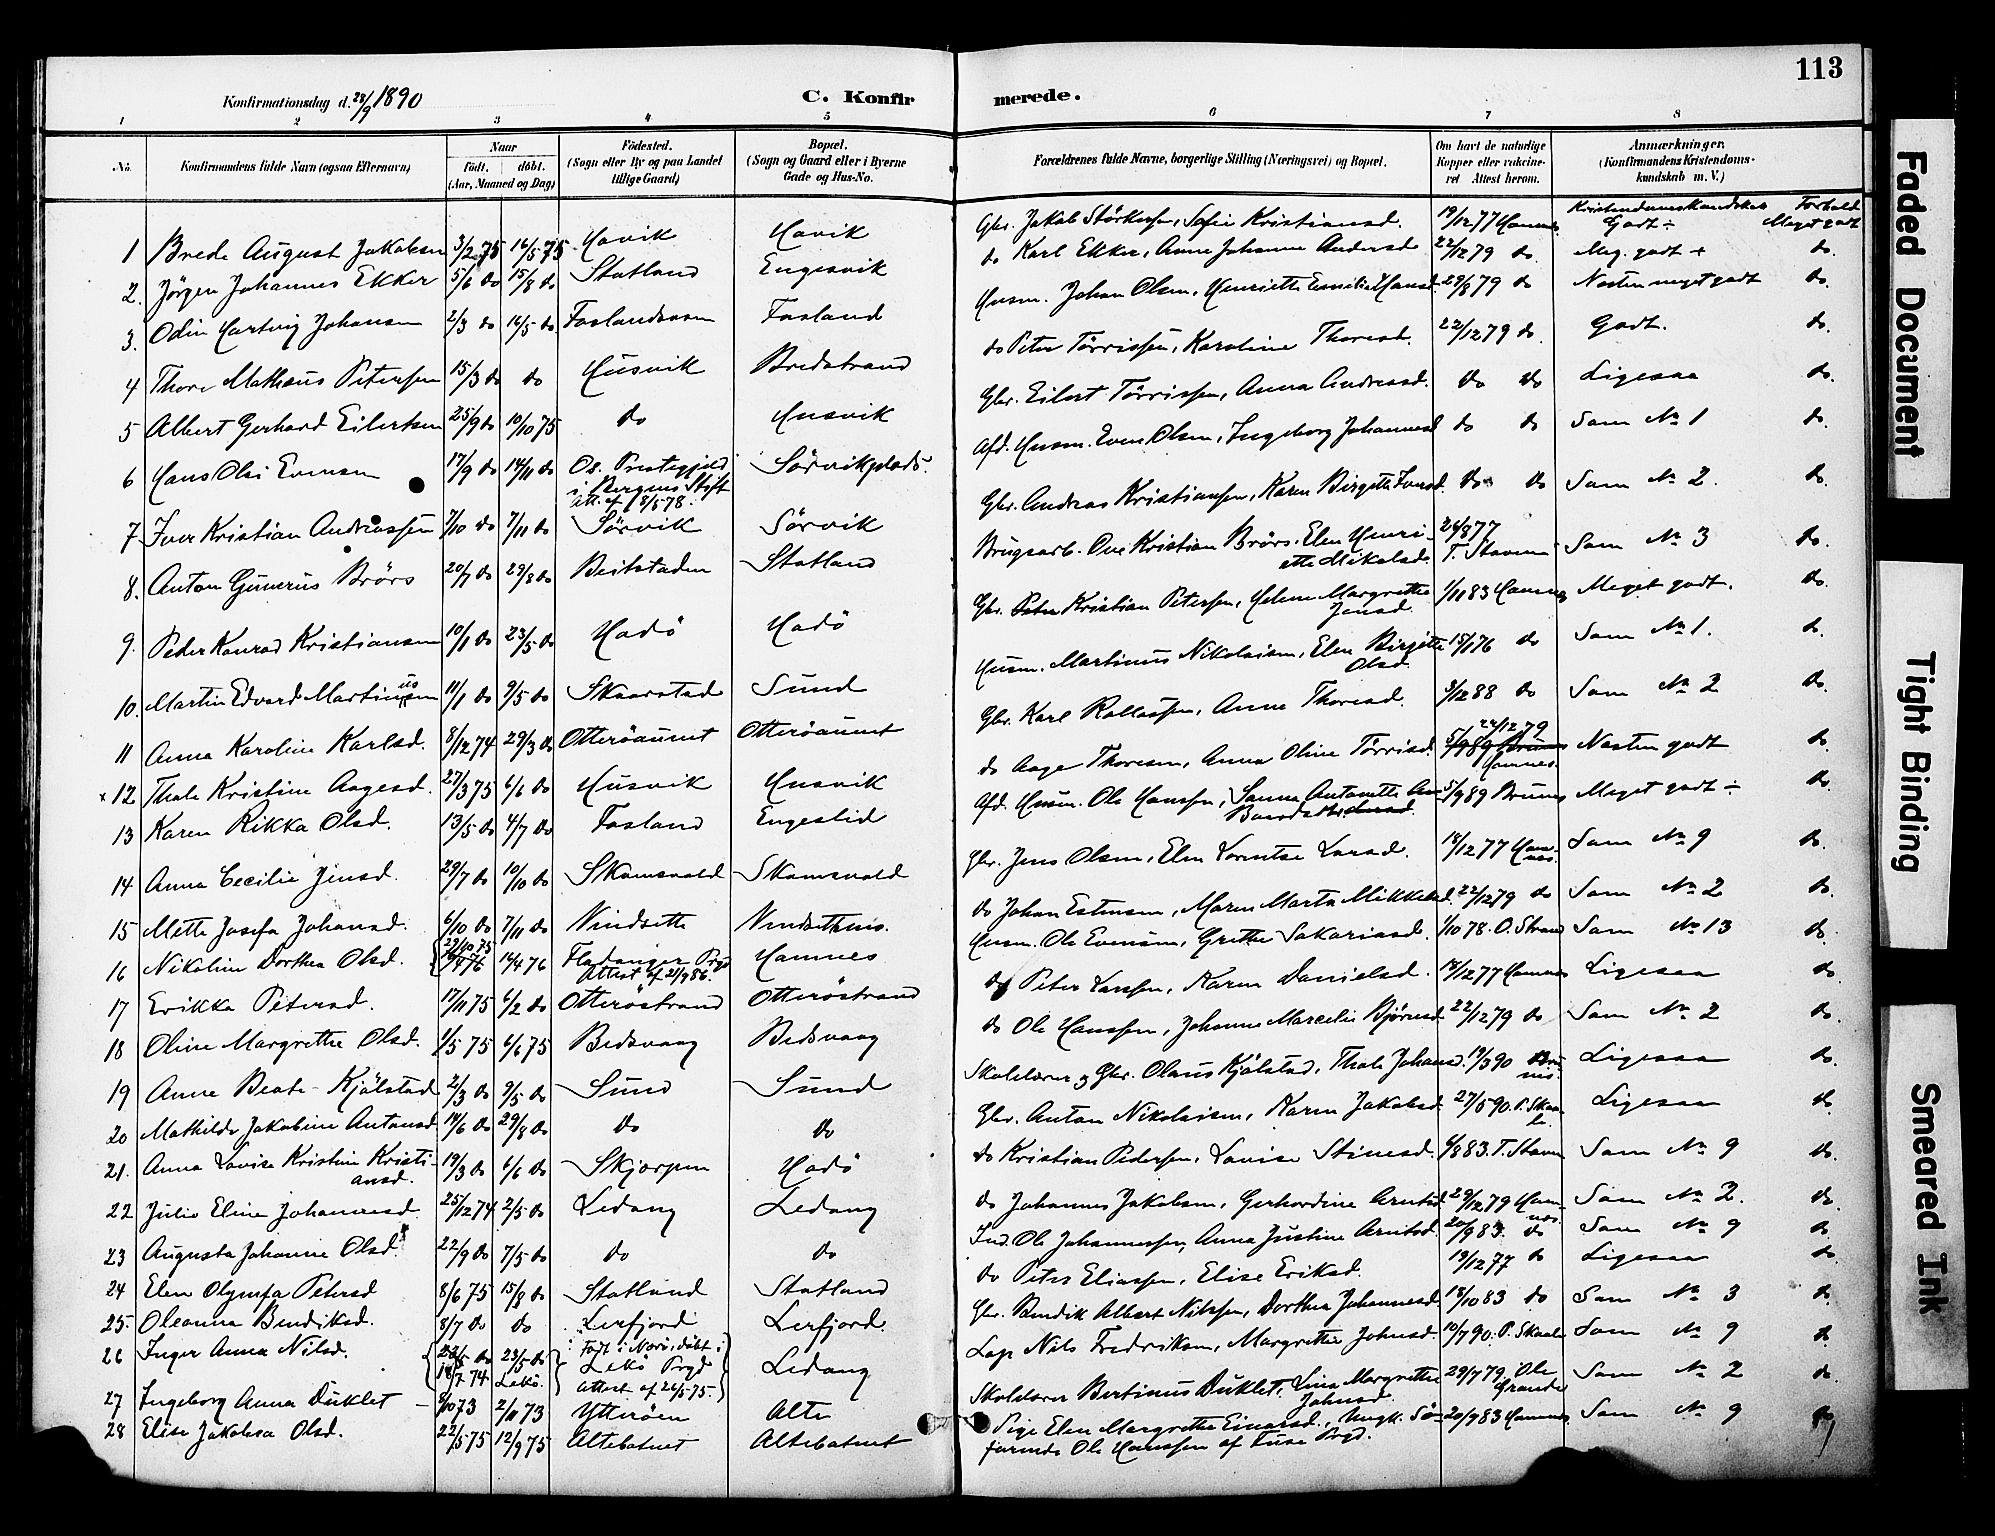 113
Konfirmationsdag d. 28/9 1890
C. Konfirmerede.
1 2 3 4 5 6 7 8
No.
Konfirmandens fulde Navn (ogsaa Efternavn)
Naar
født. døbt.
(Aar, Maaned og Dag)
Fødested.
(Sogn eller By og paa Landet tillige Gaard)
Bopæl.
(Sogn og Gaard eller i Byerne Gade og Hus-No.
Forældrenes fulde Navne, borgerlige Stilling (Næringsvei) og Bopæl.
Om havt de naturlige Kopper eller vakcineret Attest herom.
Anmærkninger.
(Konfirmandens Kristendomskundskab m. V.)
Kristendomskundskab Forhold
1 Brede August Jakobsen 3/2 75 16/5 75 Havik Havik Gbr. Jakob Störkersen, Sofie Kristiansd. 19/12 77 Hamnes Godt ÷ Meget godt
2. Jörgen Johannes Ekker 5/6 do 15/8 do Statland Engesvik do Karl Ekker, Anne Johanna Andersd 22/12 79 do. Meg. godt + do.
3. Odin Hartvig Johansen 2/3 do 16/5 do Faslandsaasen Fasland Husm. Johan Olsen, Henriette Emilie Hansd. 29/8 79 do Næsten meget godt do.
4 Thore Mathæus Petersen 15/3 do do Husvik Bredstrand do Peter Törrissen, Karoline Thoresd. 22/12 79 do. Godt. do.
5 Albert Gerhard Eilertsen 25/9 do 10/10 75 do Husvik Gbr. Eilert Törrissen, Anna Andreasd. do do Ligesaa do.
6 Hans Olai Evensen 17/9 do 14/11 do Os. Prestegjeld i Bergens Stift Att. af 18/5 78. Sörvikplads. Afd. Husm. Even Olsen, Ingeborg Johannesd do do Som No 1 do.
7 Iver Kristian Andreassen 7/10 do 7/11 do Sörvik Sörvik Gbr. Andreas Kristiansen, Karen Birgitte Iversd. do do Som No 2. do.
8. Anton Gunerius Brörs 20/7 do 29/8 do Beitstaden Statland Brugsarb. Ove Kristian Brörs. Elen Henriette Mikalsd. 24/8 77 T. Stavem Som No 3 do.
9. Peder Konrad Kristiansen 10/1 do 23/5 do Hadö Hadö Gbr. Peter Kristian Petersen, Helene Margrethe Jensd. 1/11 83 Hamnes Meget godt. do.
10. Martin Edvard Martinussen 11/1 do 9/5 do Skaarstad Sund Husm. Martinus Nikolaisen, Elen Birgitte Olsd. 15/1 76 do Som No 1. do.
11 Anna Karoline Karlsd. 8/12 74 29/3 do Otteröaunet Otteröaunet Gbr. Karl Rallassen, Anne Thoresd. 3/12 88 do Som No 2 do.
x 12 Thale Kristine Aagesd. 27/3 75 6/6 do Husvik Husvik do Aage Thoresen, Anna Oline Törrisd. 22/12 79 5/9 89 Hamnes. Næsten godt do.
13 Karen Rikka Olsd. 13/5 do 4/7 do Fasland Engeslid Afd. Husm. Ole Hanssen, Sanna Antonette 5/9 89 Brunes Meget godt ÷ do.
14 Anna Cecilie Jensd. 29/7 do 10/10 do Skamsvold Skamsvold Gbr. Jens Olsen, Elen Lorentse Larsd. 18/12 77 Hamnes. Som No 9 do.
15 Mette Josefa Johansd. 6/10 do 7/11 do Vindsette do Johan Estensen, Maren Marta Mikkelsd. 22/12 79 do Som No 2 do.
16 Nikoline Dorthea Olsd. 14/4 76 Fladanger Prgd Attest af 21/9 86. Hamnes Husm. Ole Evensen, Grethe Sakariasd. 1/10 78. O. Strand Som No 13 do.
17 Erikka Petersd. 17/11 75 6/2 do Otteröstrand Otteröstrand do Peter Larssen, Karen Danielsd. 18/12 77 Hamnes Ligesaa do
18 Oline Margrethe Olsd. 1/5 75 6/6 75 Bedsvaag Bedsvaag do Ole Hanssen, Johanna Marcelie Björnsd. 22/12 79 do Som No 2 do.
19 Anne Beate Kjölstad 2/3 do 9/5 do Sund Sund Skolelærer og Gbr. Olaus Kjölstad, Thale Johansd. 19/3 90 Brunes. Ligesaa do.
20 Mathilde Jakobine Antonsd 14/6 do 29/8 do do do Gbr. Anton Nikolaisen, Karen Jakobsd. 27/5 90. P. Skaale. Ligesaa do.
21. Anna Lovise Kristine Kristiansd. 19/3 do 6/6 do Skjærpen Hadö do Kristian Pedersen, Lovise Stinesd. 6/8 83. T. Stavem Som No 9 do.
22 Julie Eline Johannesd. 25/12 74 2/5 do Ledang Ledang do Johannes Jakobsen, Gerhardine Arntsd. 29/12 79 Hamnes. Som No 2. do.
23 Augusta Johanne Olsd. 22/9 do 7/5 do do do Ind. Ole Johannessen, Anna Justine Arntsd. 20/9 83. do Som No 9 do.
24 Elen Olympa Petersd 8/6 75 15/8 do Statland Statland do Peter Eliassen, Elise Eriksd. 19/12 77 do Ligesaa do.
25. Oleanna Bendiksd. 8/7 do do Lerfjord Lerfjord. Gbr. Bendik Albert Nilssen, Dorthea Johannesd 18/10 83 do Som No 3 do.
26 Inger Anna Nilsd. 18/7 74 23/5 do Lekö. Födt i Nærö, döbt i Lekö Prgd Attest af 26/5 75. Ledang Lap Nils Fredriksen, Margrethe Johnsd. 10/7 90. P. Skaale Som No 9 do.
27 Ingeborg Anna Duklet 8/10 73 2/11 73 Ytteröen Alte Skolelærer Bertinus Duklet, Lina Margrethe Johnsd. 29/7 79 Ole Grande Som No 2 do.
28 Elise Jakobea Olsd. 22/5 75 12/9 75 Altebatnet Altebatnet Pige Elen Margrethe Einarsd., Ungk. Söfarende Ole Hanssen af Fuse Prgd. 20/9 83 Hamnes Som No 9 do
Faded Document
Tight Binding
Smeared Ink